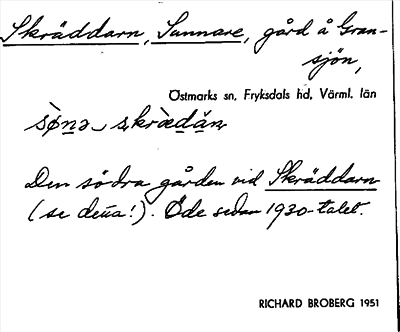 Skräddarn, Sunnare, gård å Gran-
sjön,
Östmarks sn, Fryksdals hd, Värml. län
sø̀nə skræ̀dăn
Den södra gården vid Skräddarn
(se detta!). Öde sedan 1930-talet.
RICHARD BROBERG 1951